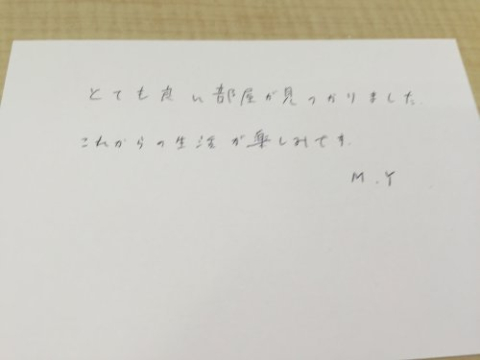 とても良い部屋が見つかりました.
これからの生活が楽しみです.
M.Y